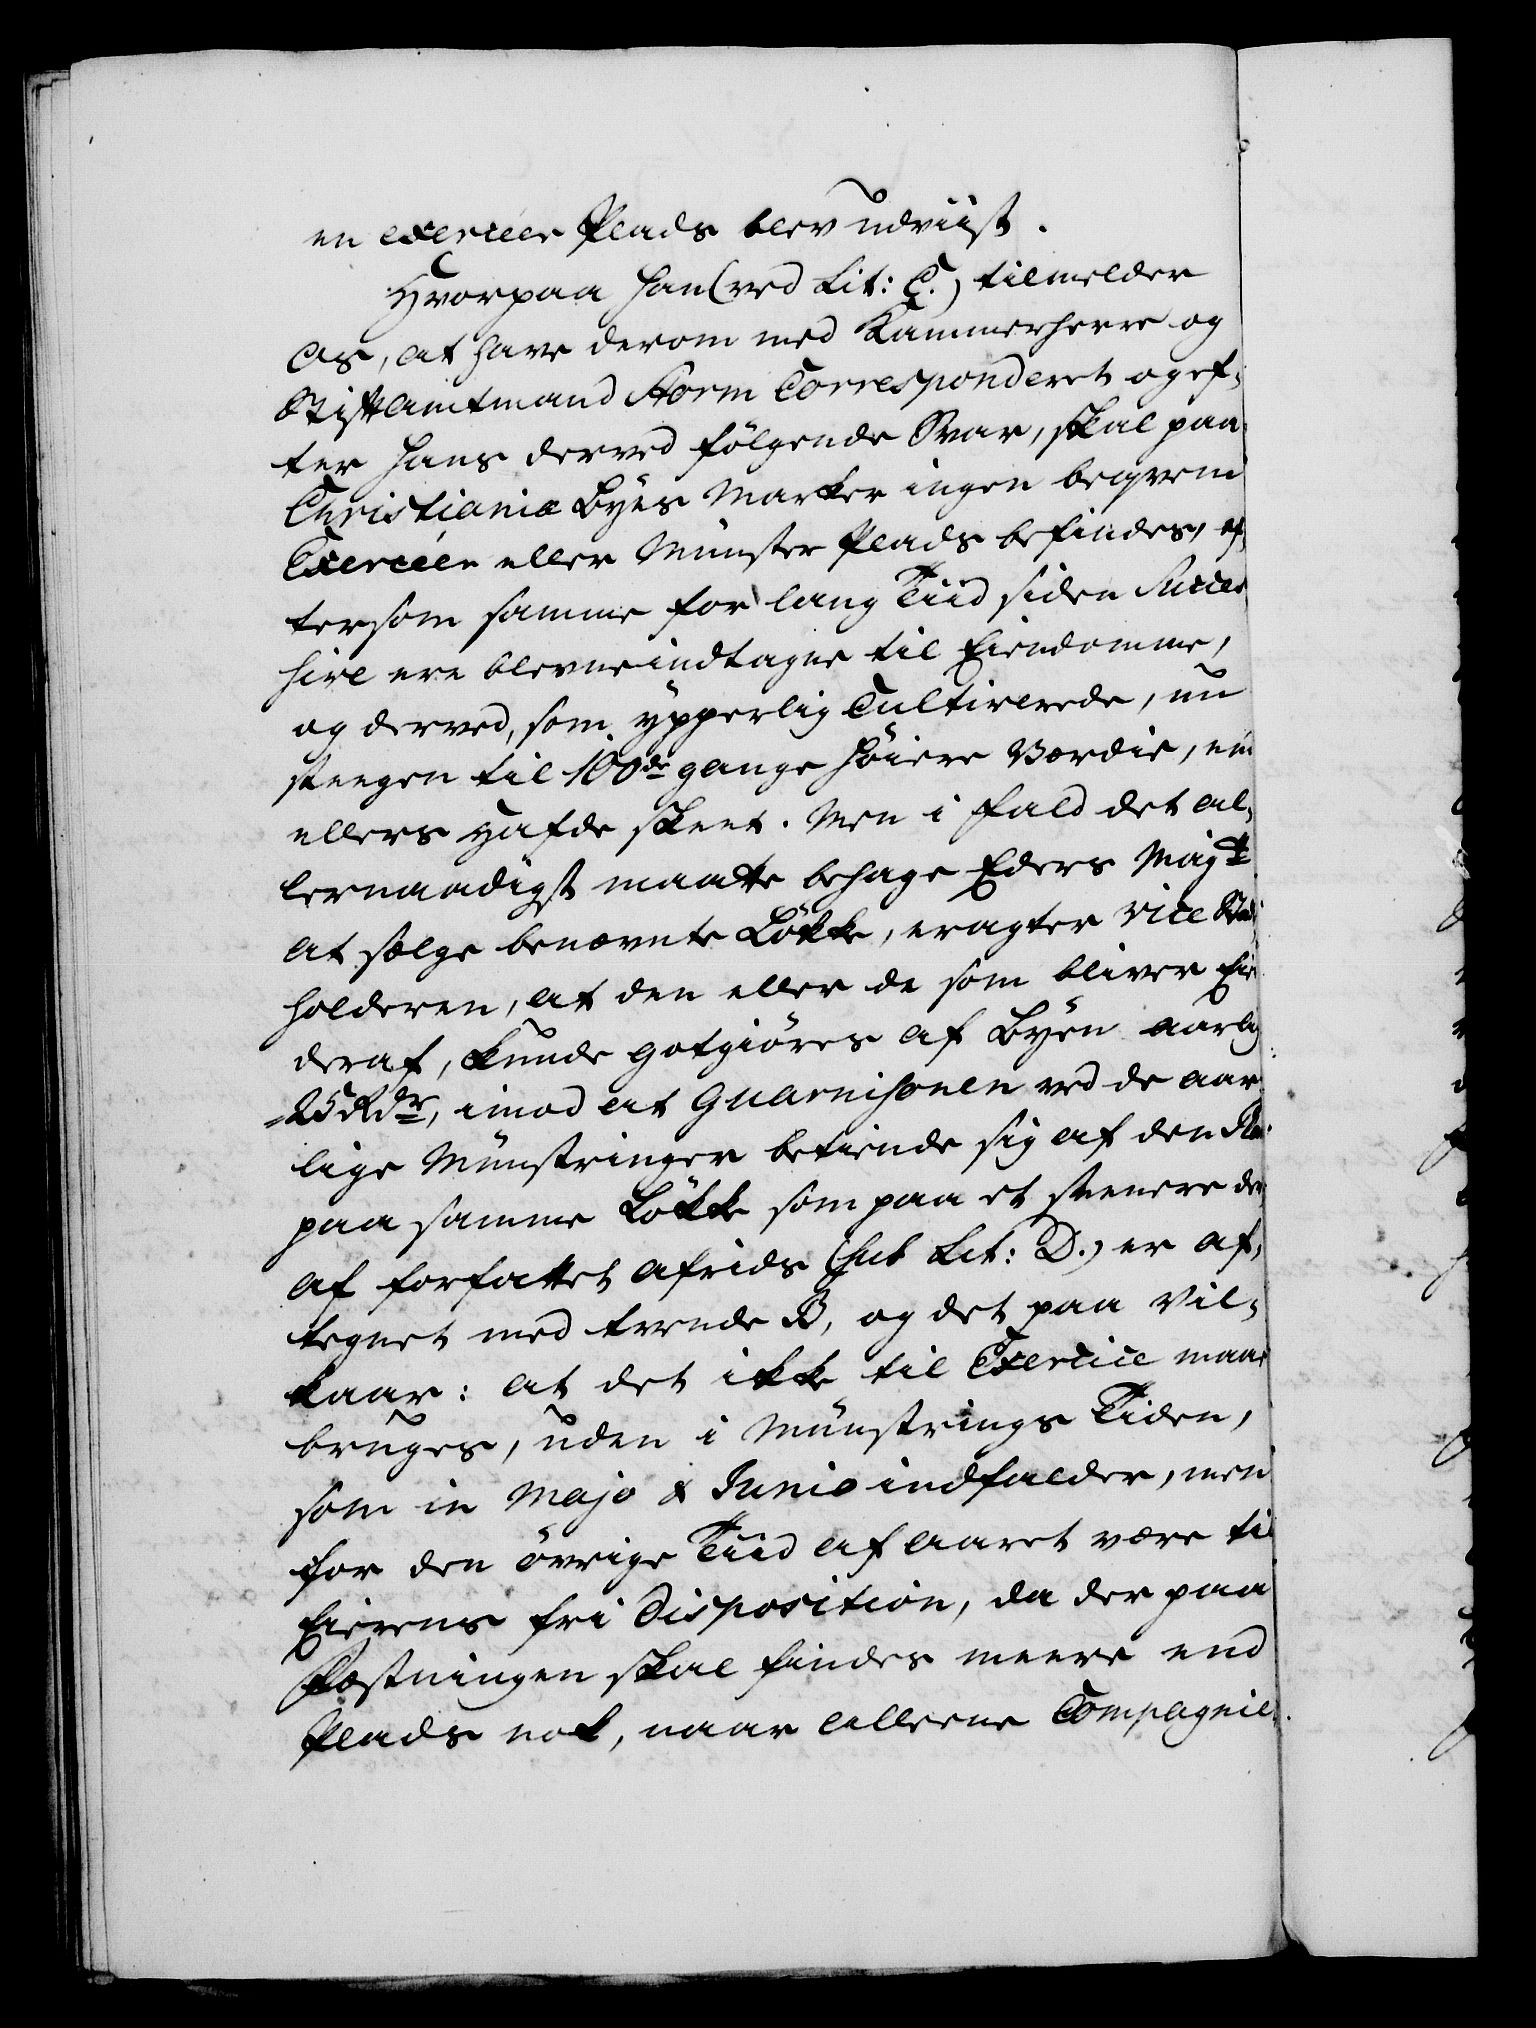 en exerceer Plads blev udviist.
Hvorpaa han (ved Lit: C.) tilmelder
os, at have derom med Kammerherre og
Stiftamtmand Storm Correspondert og ef-
ter hans derved følgende Svar, skal paa
Christianiæ Byes Marker ingen beqvem
Exerceer eller Mynster Plads befindes, ef-
tersom samme for lang Tiid siden Succes
sive ere blevne indtagne til Eiendomme,
og derved, som ypperlig Cultiverede, nu
steegen til 100de gange høiere Værdie, end
ellers hafde skeet. Men i fald det al-
lernaadigst maatte behage Eders Majtt
at sælge benævnte Løkke, eragter Vice Stad
holderen, at den eller de som bliver Eier
deraf, kunde gotgiøres af Byen aarlig
25 Rdr, imod at Guarnisonen ved de aar
lige Mynstringer betiende sig af den Plads
paa samme Løkke som paa et steenere der
af forfattet afrids (sub Lit: D.) er af-
tegnet med trende B, og det paa Vil-
kaar: at det ikke til Exercice maae
bruges, uden i Mynstrings Tiden,
som in Majo & Junio indfalder, men
for den øvrige Tiid af aaret være til
Eierens fri Disposition, da der paa
Fæstningen skal findes meere end
Plads nok, naar allene Compagnie